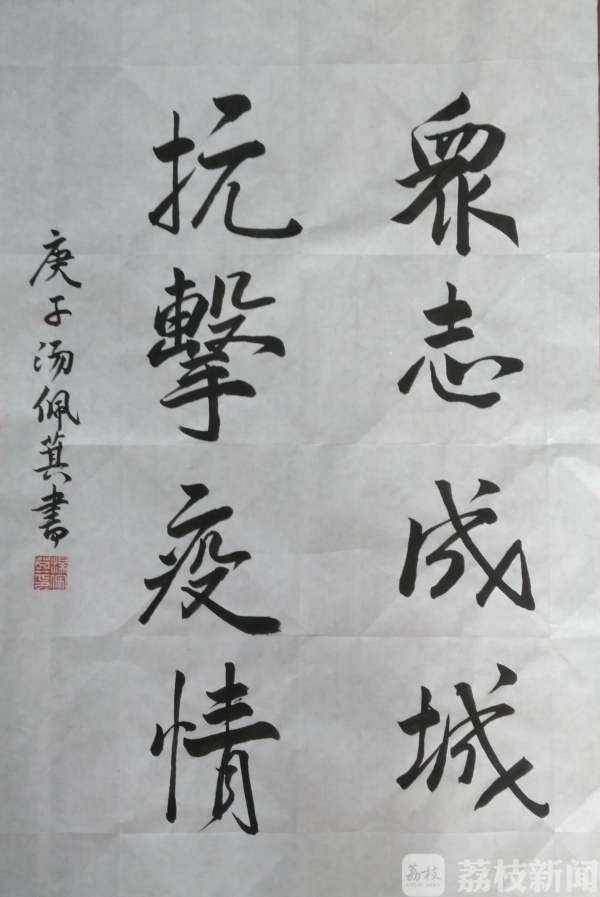 眾志成城
抗擊疫情
庚子汤佩箕書
荔枝
荔枝新闻